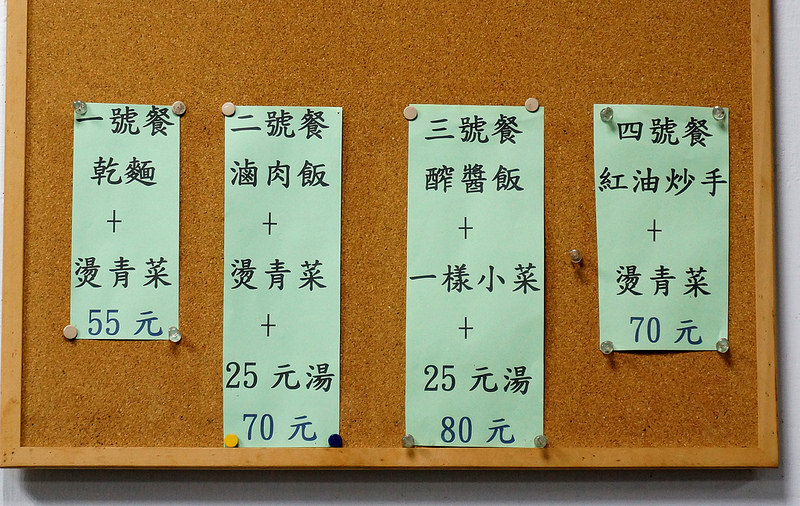 一號餐
乾麵
+
燙青菜
55 元
二號餐
滷肉飯
+
燙青菜
+
25 元湯
70 元
三號餐
醡醬飯
+
一樣小菜
+
25 元湯
80 元
四號餐
紅油炒手
+
燙青菜
70 元